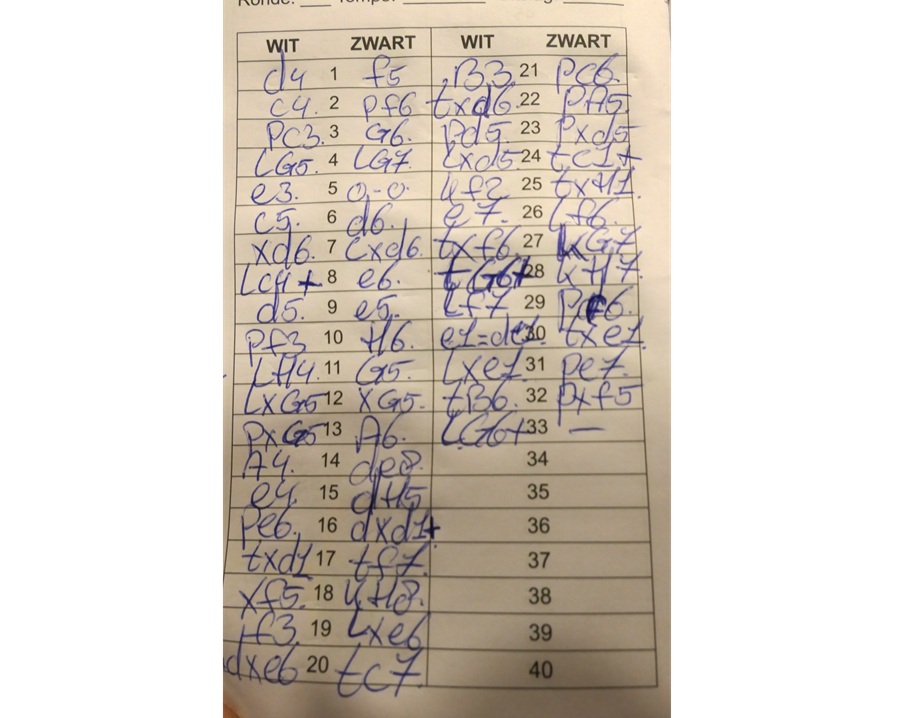 WIT ZWART WIT ZWART
d4 1 f5 B3. 21 Pc6.
c4. 2 Pf6 txd6. 22 PA5.
Pc3. 3 G6. Pd5. 23 Pxd5
LG5. 4 LG7. Lxd5. 24 tc1+
e3. 5 0-0. kf2. 25 txH1.
c5. 6 d6. e7. 26 Lf6.
xd6. 7 Cxd6. txf6. 27 kG7.
Lc4+ 8 e6. tG6+ 28 kH7.
d5. 9 e5. Lf7 29 Pc6.
Pf3 10 H6. 30 txe1.
LH4. 11 G5. Lxe1. 31 Pe7.
LxG5 12 xG5. tB6. 32 Pxf5
PxG5 13 A6. LG6+ 33 —
A4. 14 de8. 34
e4. 15 dH5 35
Pe6. 16 dxd1+ 36
txd1 17 tf7. 37
xf5. 18 kH8. 38
f3. 19 Lxe6 39
dxe6 20 tc7. 40